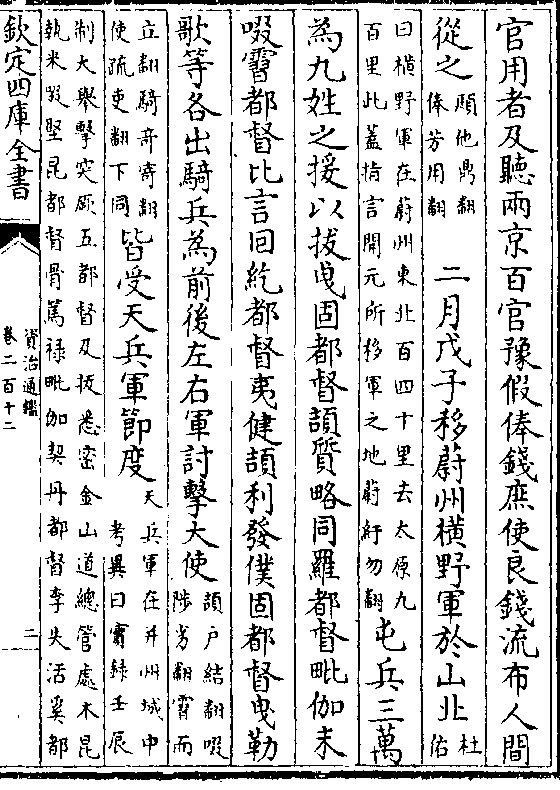 官用者及聽兩京百官豫假俸錢庶使良錢流布人間
從之願他鼎翻俸芳用翻二月戊子移蔚州橫野軍於山北杜佑
曰橫野軍在蔚州東北百四十里去太原九百里此蓋指言開元所移軍之地蔚紆勿翻屯兵三萬
為九姓之援以拔曳固都督頡質略同羅都督毗伽末
啜霫都督比言回紇都督夷健頡利發僕固都督曳勒
歌等各出騎兵為前後左右軍討擊大使頡戶結翻啜陟劣翻霫而
立翻騎奇寄翻使疏吏翻下同皆受天兵軍節度天兵軍在并州城中考異曰實錄壬辰
制大舉擊突厥五都督及拔悉密金山道總管處木昆執米啜堅昆都督骨篤祿毗伽契丹都督李失活奚都
欽定四庫全書
資治通鑑
卷二百十二
二